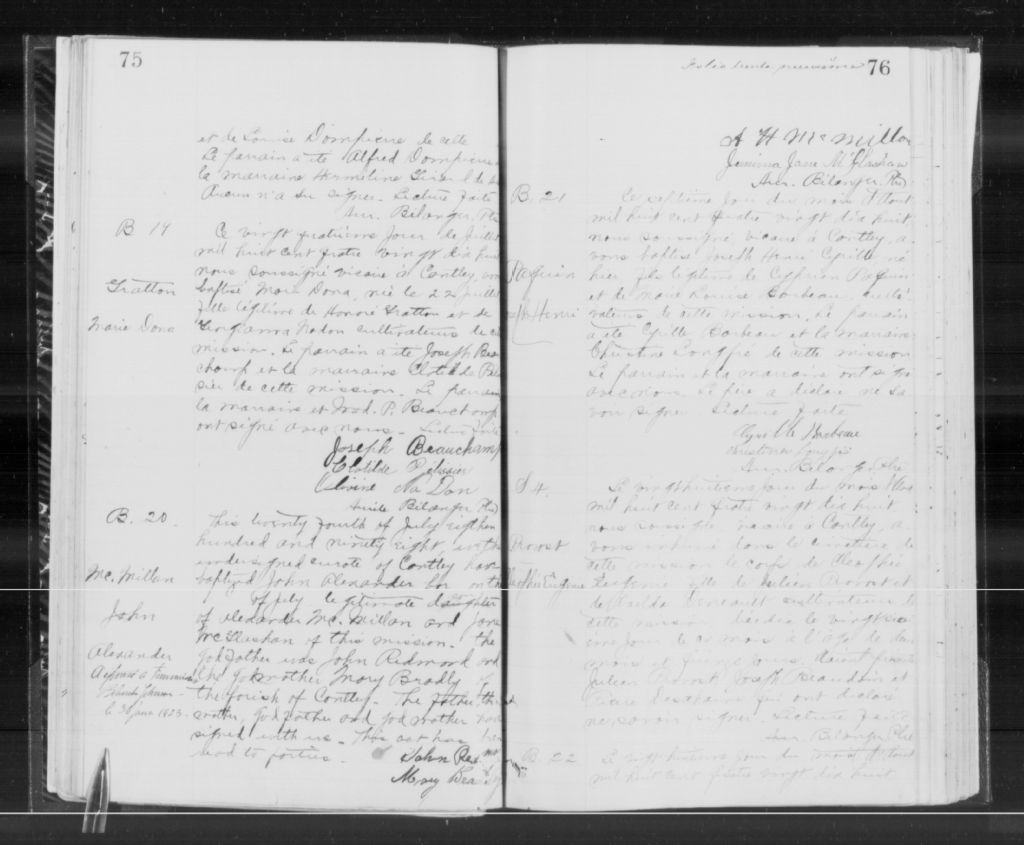 75
et de Louise Dompierre de cette
Le parrain a été Alfred Dompierre
la marraine Hermeline
Aucun n'a su signer. Lecture faite
Aur. Bélanger, Ptre
B 19
Gratton
Marie Dona
Ce vingt quatrième jour de juillet
mil huit cent quatre vingt dix huit
nous soussigné vicaire à Cantley, avons
baptisé Marie Dona, née le 22 juillet
fille légitime de Honoré Gratton et de
Georgianna Nadon cultivateurs de cette
mission. Le parrain a été Joseph Beau
champ et la marraine Clotilde Pelis
sier de cette mission. Le parrain
la marraine et Mad. P. Beauchamp
ont signé avec nous. Lecture faite
Joseph Beauchamp
Clotilde Pelissier
Olivine Na Don
Aur. Bélanger Ptre
B. 20.
Mc. Millan
John
Alexander
le 30 juin 1923
This twenty fourth of July eighteen
hundred and ninety eight, we the
undersigned curate of Cantley have
baptized John Alexander bor on the
of july legitimate daughter
of Alexander Mc. Millan and Jane
McGlashan of this mission. The
godfather was John Redmond and
the godmother Mary Bradly of
the parish of Cantley. The father, the
mother, godfather and god mother have
signed with us. This act has been
read to parties.
John Red
Mary Bra
Folio trente neuvième 76
A H McMillan
Jemima Jane McGlashan
Aur. Bélanger Ptre
B. 21
Paquin
Joseph Henri
Ce septième jour du mois d'Aout
mil huit cent quatre vingt dix huit,
nous soussigné, vicaire à Cantley, a
vons baptisé Joseph Henri Cyrille né
hier, fils légitime de Cyprien Paquin
et de Marie Louise Barbeau, culti
vateurs de cette mission. Le parrain
a été Cyrille Barbeau et la marraine
Christine Longpré de cette mission
Le parrain et la marraine ont signé
avec nous. Le père a déclaré ne sa
voir signer Lecture faite
Cyrille Barbeau
Christine Longpré
Aur. Bélanger, Ptre
S 4.
Provost
Cléophée Eugénie
Le vingt huitième jour du mois d'Aout
mil huit cent quatre vingt dix huit
nous soussigné vicaire à Cantley, a
vons inhumé dans le cimetière de
cette mission le corps de Cléophée
Eugénie fille de Julien Provost et
de cultivateurs de
cette mission décédée le vingt six
ième jour de ce mois à l'âge de deux
mois et quinze jours. Etaient présents
Julien Provost Joseph Beaudoin et
qui ont déclaré
ne savoir signer. Lecture faite
Aur. Bélanger, Ptre
B. 22
Le vingt huitième jour du mois d'Aout
mil huit cent quatre vingt dix huit